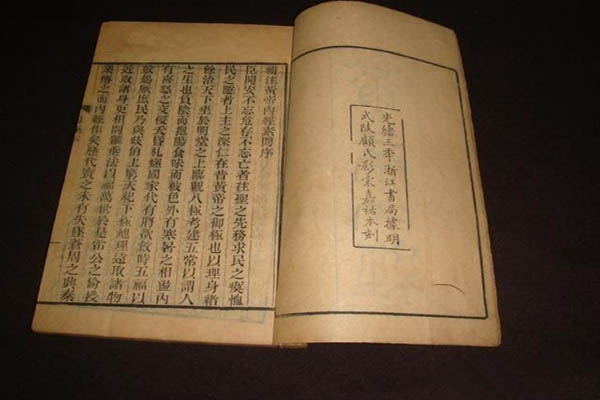 光緒三秊浙江書局據明
武陵顧氏影宋嘉祐本刻
補注黃帝內經素問序
臣聞安不忘危存不忘亡者往聖之先務求民之瘼恤
民之隱者上主之深仁在昔黃帝之御極也以理身緒
餘治天下坐於明堂之上臨觀八極考建五常以謂人
之生也負陰而抱陽食味而被色外有寒暑之相盪內
有喜怒之交侵夭昏札瘥國家代有將欲斂時五福以
敷錫厥庶民乃與岐伯上窮天紀下極地理遠取諸物
近取諸身更相問難垂法以福萬世於是雷公之倫授
業傳之而內經作矣歷代寶之未有失墜蒼周之興秦